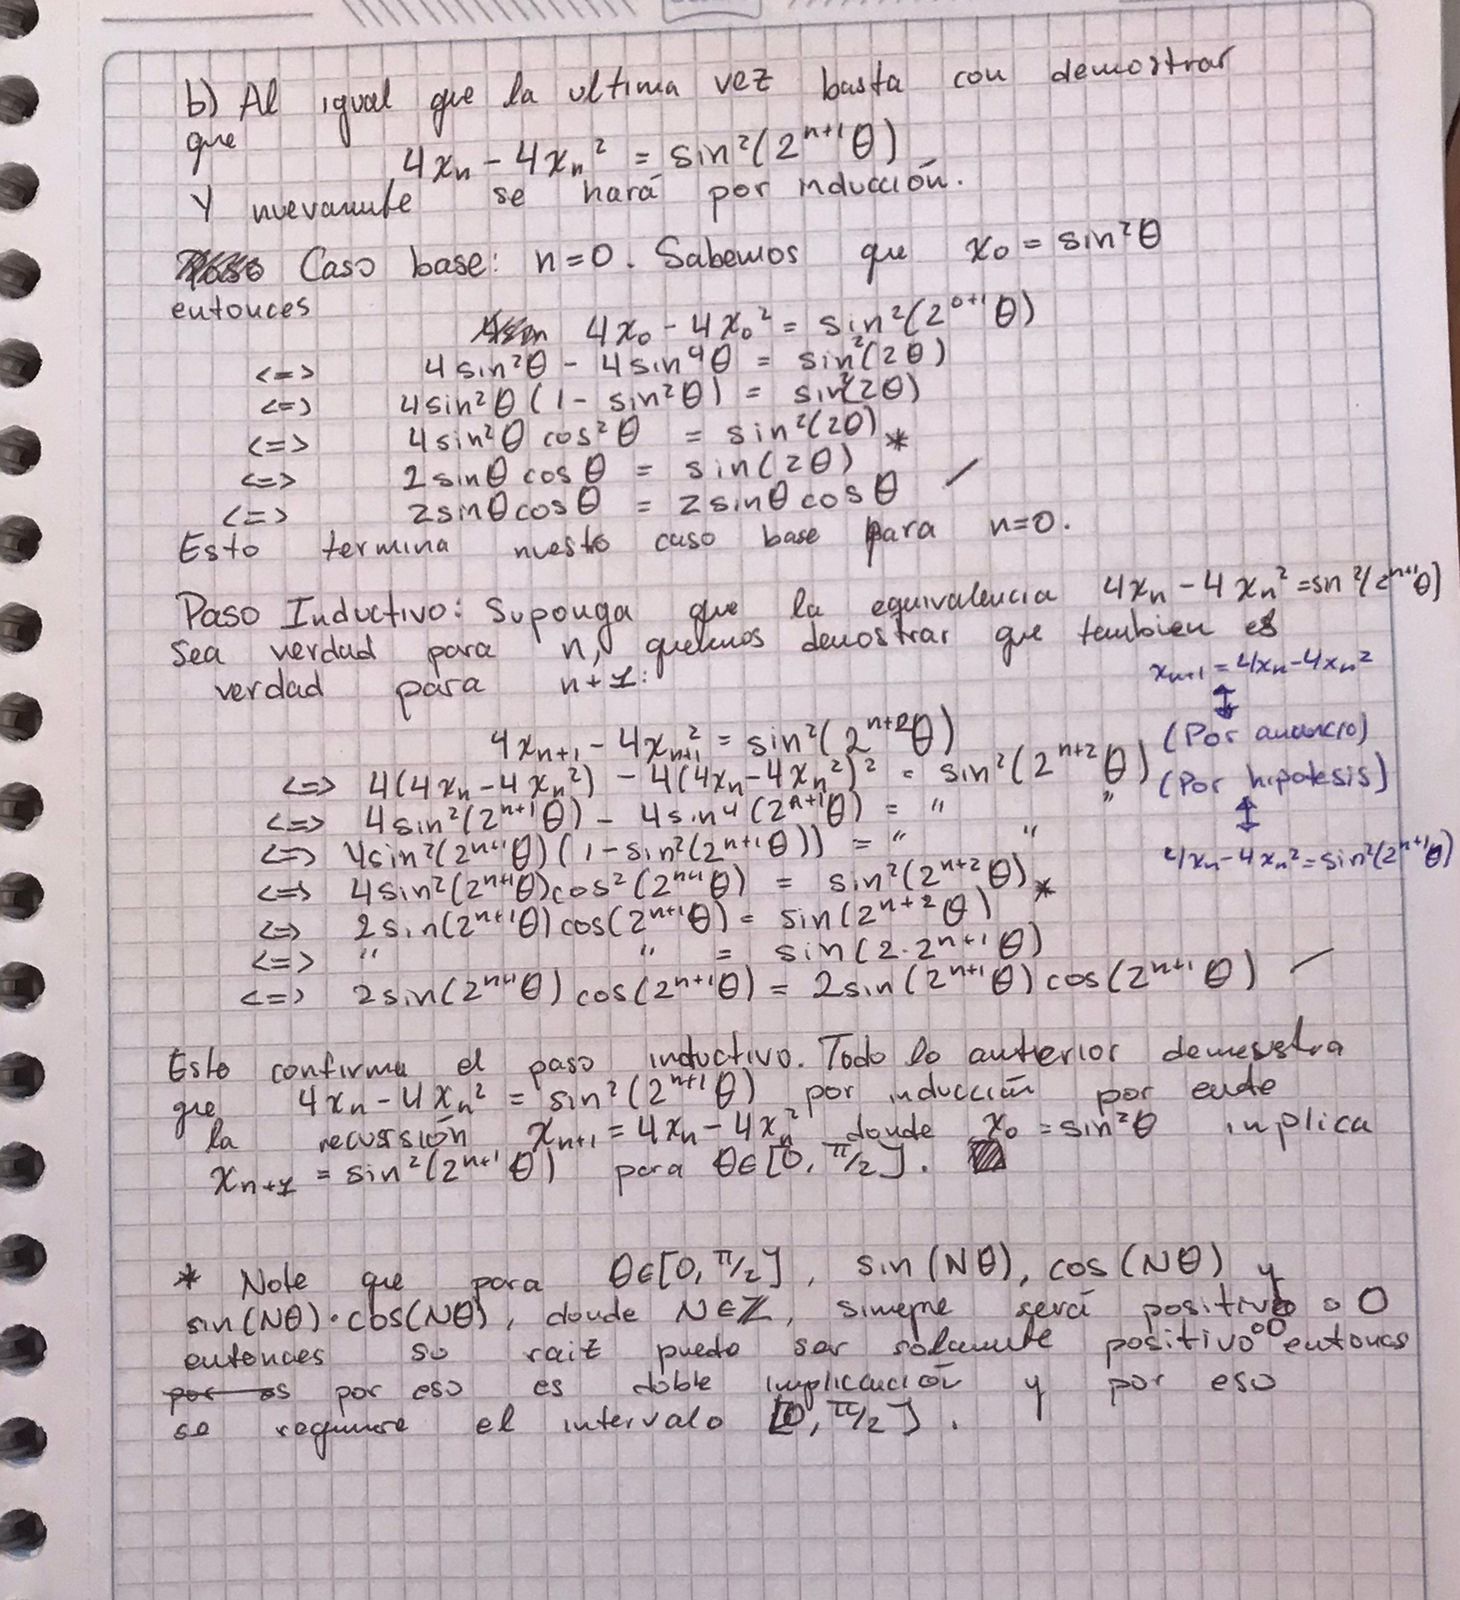 b) Al igual que la ultima vez basta con demostrar
que
4xₙ - 4xₙ² = sin²(2ⁿ⁺¹θ)
Y nuevamente se hará por inducción.
Caso base: n=0. Sabemos que x₀ = sin²θ
entonces
4x₀ - 4x₀² = sin²(2⁰⁺¹θ)
<=> 4sin²θ - 4sin⁴θ = sin²(2θ)
<=> 4sin²θ(1 - sin²θ) = sin²(2θ)
<=> 4sin²θ cos²θ = sin²(2θ) *
<=> 2sinθ cosθ = sin(2θ)
<=> 2sinθcosθ = 2sinθcosθ ✓
Esto termina nuesto caso base para n=0.
Paso Inductivo: Suponga que la equivalencia 4xₙ - 4xₙ² = sin²(2ⁿ⁺¹θ)
sea verdad para n, queremos demostrar que tambien es
verdad para n+1:
xₙ₊₁ = 4xₙ - 4xₙ²
↕
(Por anuncio)
(Por hipotesis)
↕
4xₙ - 4xₙ² = sin²(2ⁿ⁺¹θ)
4xₙ₊₁ - 4xₙ₊₁² = sin²(2ⁿ⁺²θ)
<=> 4(4xₙ - 4xₙ²) - 4(4xₙ - 4xₙ²)² = sin²(2ⁿ⁺²θ)
<=> 4sin²(2ⁿ⁺¹θ) - 4sin⁴(2ⁿ⁺¹θ) = " "
<=> 4sin²(2ⁿ⁺¹θ)(1 - sin²(2ⁿ⁺¹θ)) = " "
<=> 4sin²(2ⁿ⁺¹θ)cos²(2ⁿ⁺¹θ) = sin²(2ⁿ⁺²θ) *
<=> 2sin(2ⁿ⁺¹θ)cos(2ⁿ⁺¹θ) = sin(2ⁿ⁺²θ)
<=> " " = sin(2·2ⁿ⁺¹θ)
<=> 2sin(2ⁿ⁺¹θ)cos(2ⁿ⁺¹θ) = 2sin(2ⁿ⁺¹θ)cos(2ⁿ⁺¹θ) ✓
Esto confirma el paso inductivo. Todo lo anterior demuestra
que 4xₙ - 4xₙ² = sin²(2ⁿ⁺¹θ) por inducción por ende
la recursión xₙ₊₁ = 4xₙ - 4xₙ² donde x₀ = sin²θ implica
xₙ₊₁ = sin²(2ⁿ⁺¹θ) para θ∈[0, π/2].
* Note que para θ∈[0, π/2], sin(Nθ), cos(Nθ) y
sin(Nθ)·cos(Nθ), donde N∈ℤ, siempre será positivo o 0
entonces so raiz puede ser solamente positivo o 0 entonces
por eso es doble implicación y por eso
se requiere el intervalo [0, π/2].